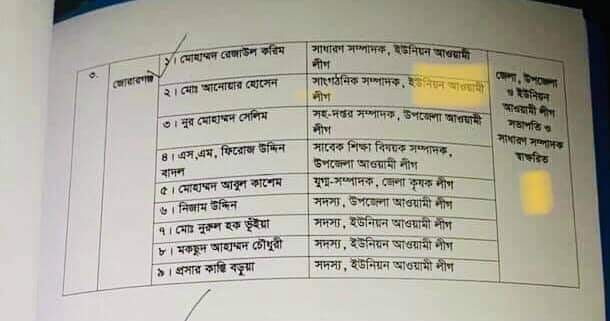 ৩.
জোরারগঞ্জ
১। মোহাম্মদ রেজাউল করিম
সাধারণ সম্পাদক, ইউনিয়ন আওয়ামী
লীগ
২। মোঃ আনোয়ার হোসেন
সাংগঠনিক সম্পাদক, ইউনিয়ন আওয়ামী
লীগ
৩। নুর মোহাম্মদ সেলিম
সহ-দপ্তর সম্পাদক, উপজেলা আওয়ামী
লীগ
৪। এস,এম, ফিরোজ উদ্দিন
বাদল
সাবেক শিক্ষা বিষয়ক সম্পাদক,
উপজেলা আওয়ামী লীগ
৫। মোহাম্মদ আবুল কাশেম
যুগ্ম-সম্পাদক, জেলা কৃষক লীগ
৬। নিজাম উদ্দিন
সদস্য, উপজেলা আওয়ামী লীগ
৭। মোঃ নুরুল হক ভূঁইয়া
সদস্য, ইউনিয়ন আওয়ামী লীগ
৮। মকছুদ আহাম্মদ চৌধুরী
সদস্য, ইউনিয়ন আওয়ামী লীগ
৯। প্রসার কান্তি বড়ুয়া
সদস্য, ইউনিয়ন আওয়ামী লীগ
জেলা, উপজেলা
ও ইউনিয়ন
আওয়ামী লীগ
সভাপতি ও
সাধারণ সম্পাদক
স্বাক্ষরিত